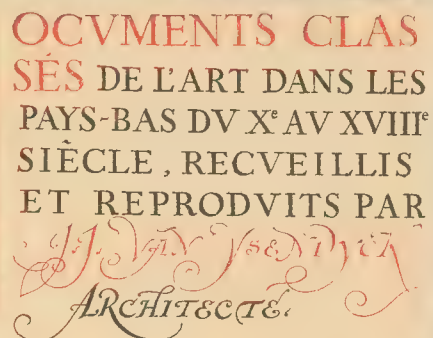 OCVMENTS CLAS
SÉS DE L'ART DANS LES
PAYS-BAS DV Xᵉ AV XVIIIᵉ
SIÈCLE, RECVEILLIS
ET REPRODVITS PAR
J.J. VAN YSENDYCK
ARCHITECTE.